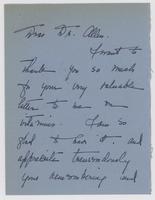 Dear Dr. Allen.
I want to
thank you so much
for your very valuable
letter to me on
vitamins. I am so
glad to have it, and
appreciate tremendously
your remembering and